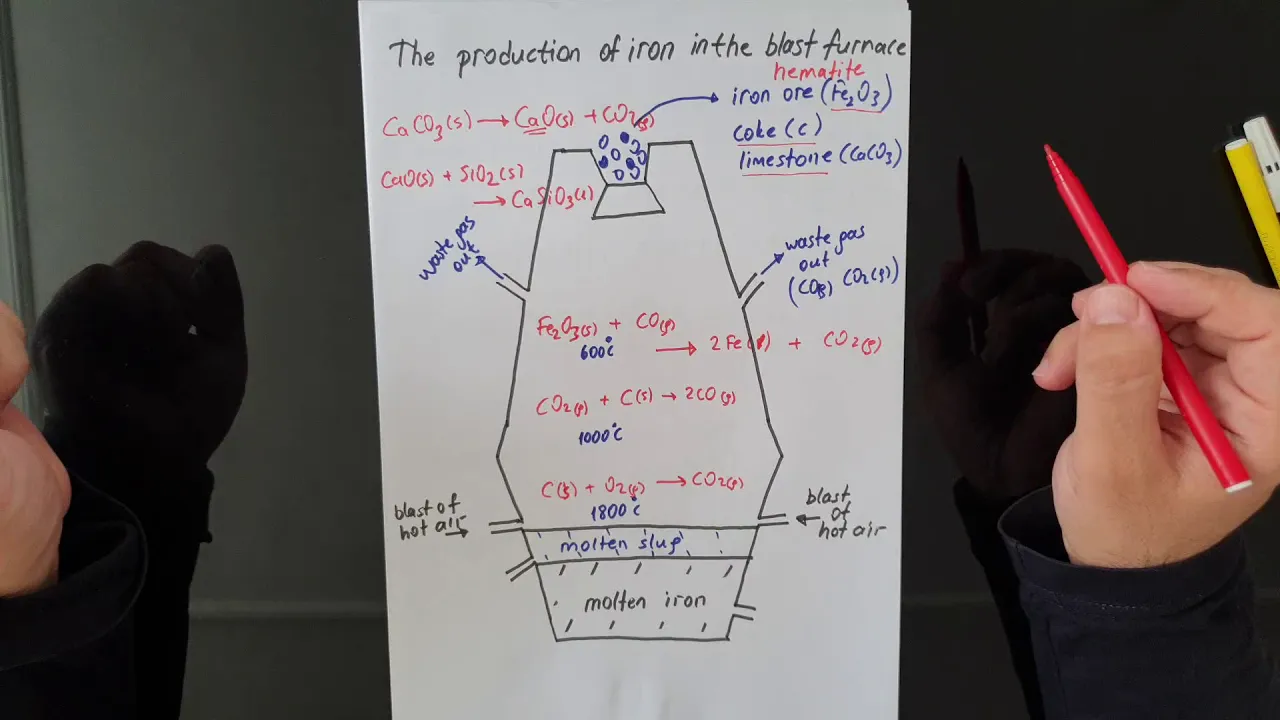 The production of iron in the blast furnace
hematite
iron ore (Fe2O3)
coke (c)
limestone (CaCO3)
CaCO3(s) → CaO(s) + CO2(g)
CaO(s) + SiO2(s)
→ CaSiO3(l)
waste gas
out
waste gas
out
(CO(g) CO2(g))
Fe2O3(s) + CO(g)
600°C
→ 2Fe(l) + CO2(g)
CO2(g) + C(s) → 2CO(g)
1000°C
C(s) + O2(g) → CO2(g)
1800°C
blast of
hot air →
← blast
of
hot air
molten slug
molten iron